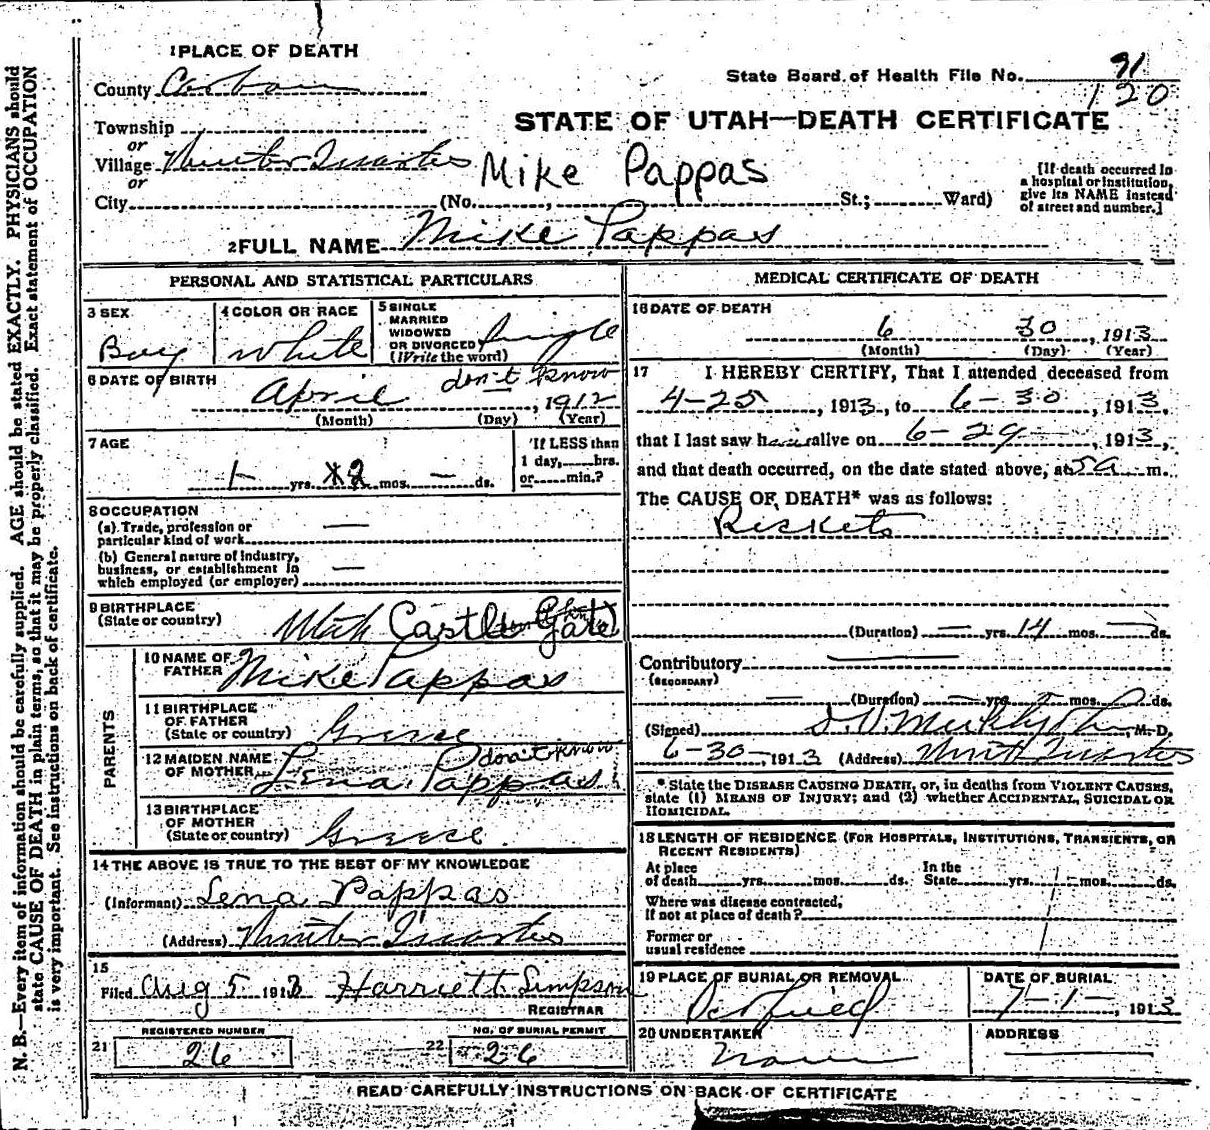 1 PLACE OF DEATH
County Carbon
State Board of Health File No. 91
120
Township
STATE OF UTAH—DEATH CERTIFICATE
or
Village Winter Quarters
Mike Pappas
or
City (No. , St.; Ward)
[If death occurred in a hospital or institution, give its NAME instead of street and number.]
2 FULL NAME Mike Pappas
PERSONAL AND STATISTICAL PARTICULARS
3 SEX
Boy
4 COLOR OR RACE
White
5 SINGLE MARRIED WIDOWED OR DIVORCED (Write the word)
Single
6 DATE OF BIRTH
April don't know, 1912
(Month) (Day) (Year)
7 AGE
1 yrs. 2 mos. — ds.
If LESS than 1 day, hrs. or min.?
8 OCCUPATION
(a) Trade, profession or particular kind of work —
(b) General nature of industry, business, or establishment in which employed (or employer) —
9 BIRTHPLACE (State or country)
Utah Castle Gate
PARENTS
10 NAME OF FATHER Mike Pappas
11 BIRTHPLACE OF FATHER (State or country) Greece
12 MAIDEN NAME OF MOTHER Lena Pappas don't know
13 BIRTHPLACE OF MOTHER (State or country) Greece
14 THE ABOVE IS TRUE TO THE BEST OF MY KNOWLEDGE
(Informant) Lena Pappas
(Address) Winter Quarters
15
Filed Aug 5 1913 Harriett Simpson
REGISTRAR
REGISTERED NUMBER
21 26
NO. OF BURIAL PERMIT
22 26
MEDICAL CERTIFICATE OF DEATH
16 DATE OF DEATH
6 30, 1913
(Month) (Day) (Year)
17 I HEREBY CERTIFY, That I attended deceased from
4-25, 1913, to 6-30, 1913,
that I last saw h alive on 6-29, 1913,
and that death occurred, on the date stated above, at 5a m.
The CAUSE OF DEATH* was as follows:
Rickets
(Duration) — yrs. 14 mos. — ds.
Contributory —
(SECONDARY)
(Duration) — yrs. mos. ds.
(Signed) M. D.
6-30-, 1913 (Address) Winter Quarters
* State the DISEASE CAUSING DEATH, or, in deaths from VIOLENT CAUSES, state (1) MEANS OF INJURY; and (2) whether ACCIDENTAL, SUICIDAL OR HOMICIDAL.
18 LENGTH OF RESIDENCE (FOR HOSPITALS, INSTITUTIONS, TRANSIENTS, OR RECENT RESIDENTS)
At place of death yrs. mos. ds. In the State yrs. mos. ds.
Where was disease contracted, if not at place of death?
Former or usual residence
19 PLACE OF BURIAL OR REMOVAL
DATE OF BURIAL
7-1-, 1913
20 UNDERTAKER
ADDRESS
READ CAREFULLY INSTRUCTIONS ON BACK OF CERTIFICATE
N. B.—Every item of information should be carefully supplied. AGE should be stated EXACTLY. PHYSICIANS should
state CAUSE OF DEATH in plain terms, so that it may be properly classified. Exact statement of OCCUPATION
is very important. See instructions on back of certificate.